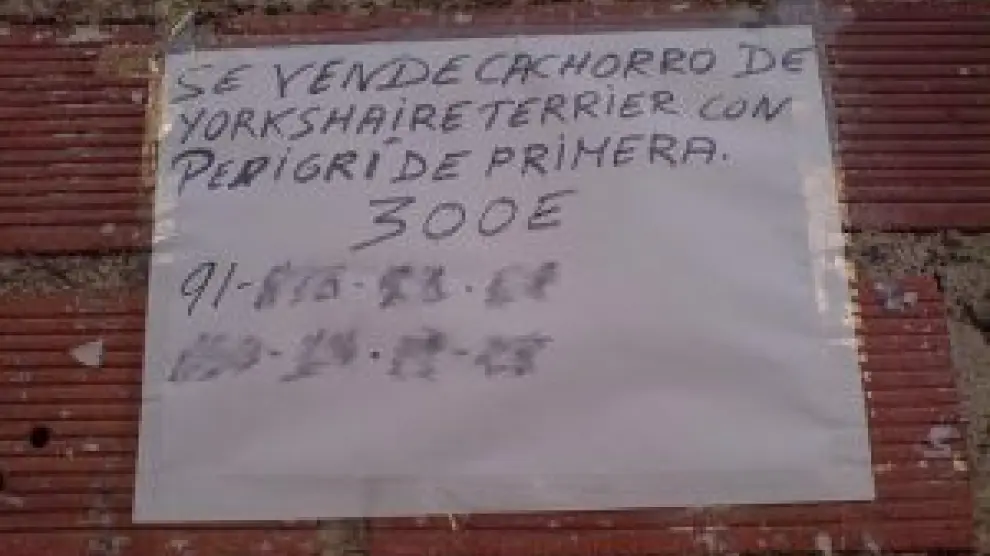 SE VENDE CACHORRO DE
YORKSHAIRE TERRIER CON
PEDIGRI DE PRIMERA.
300E
91-